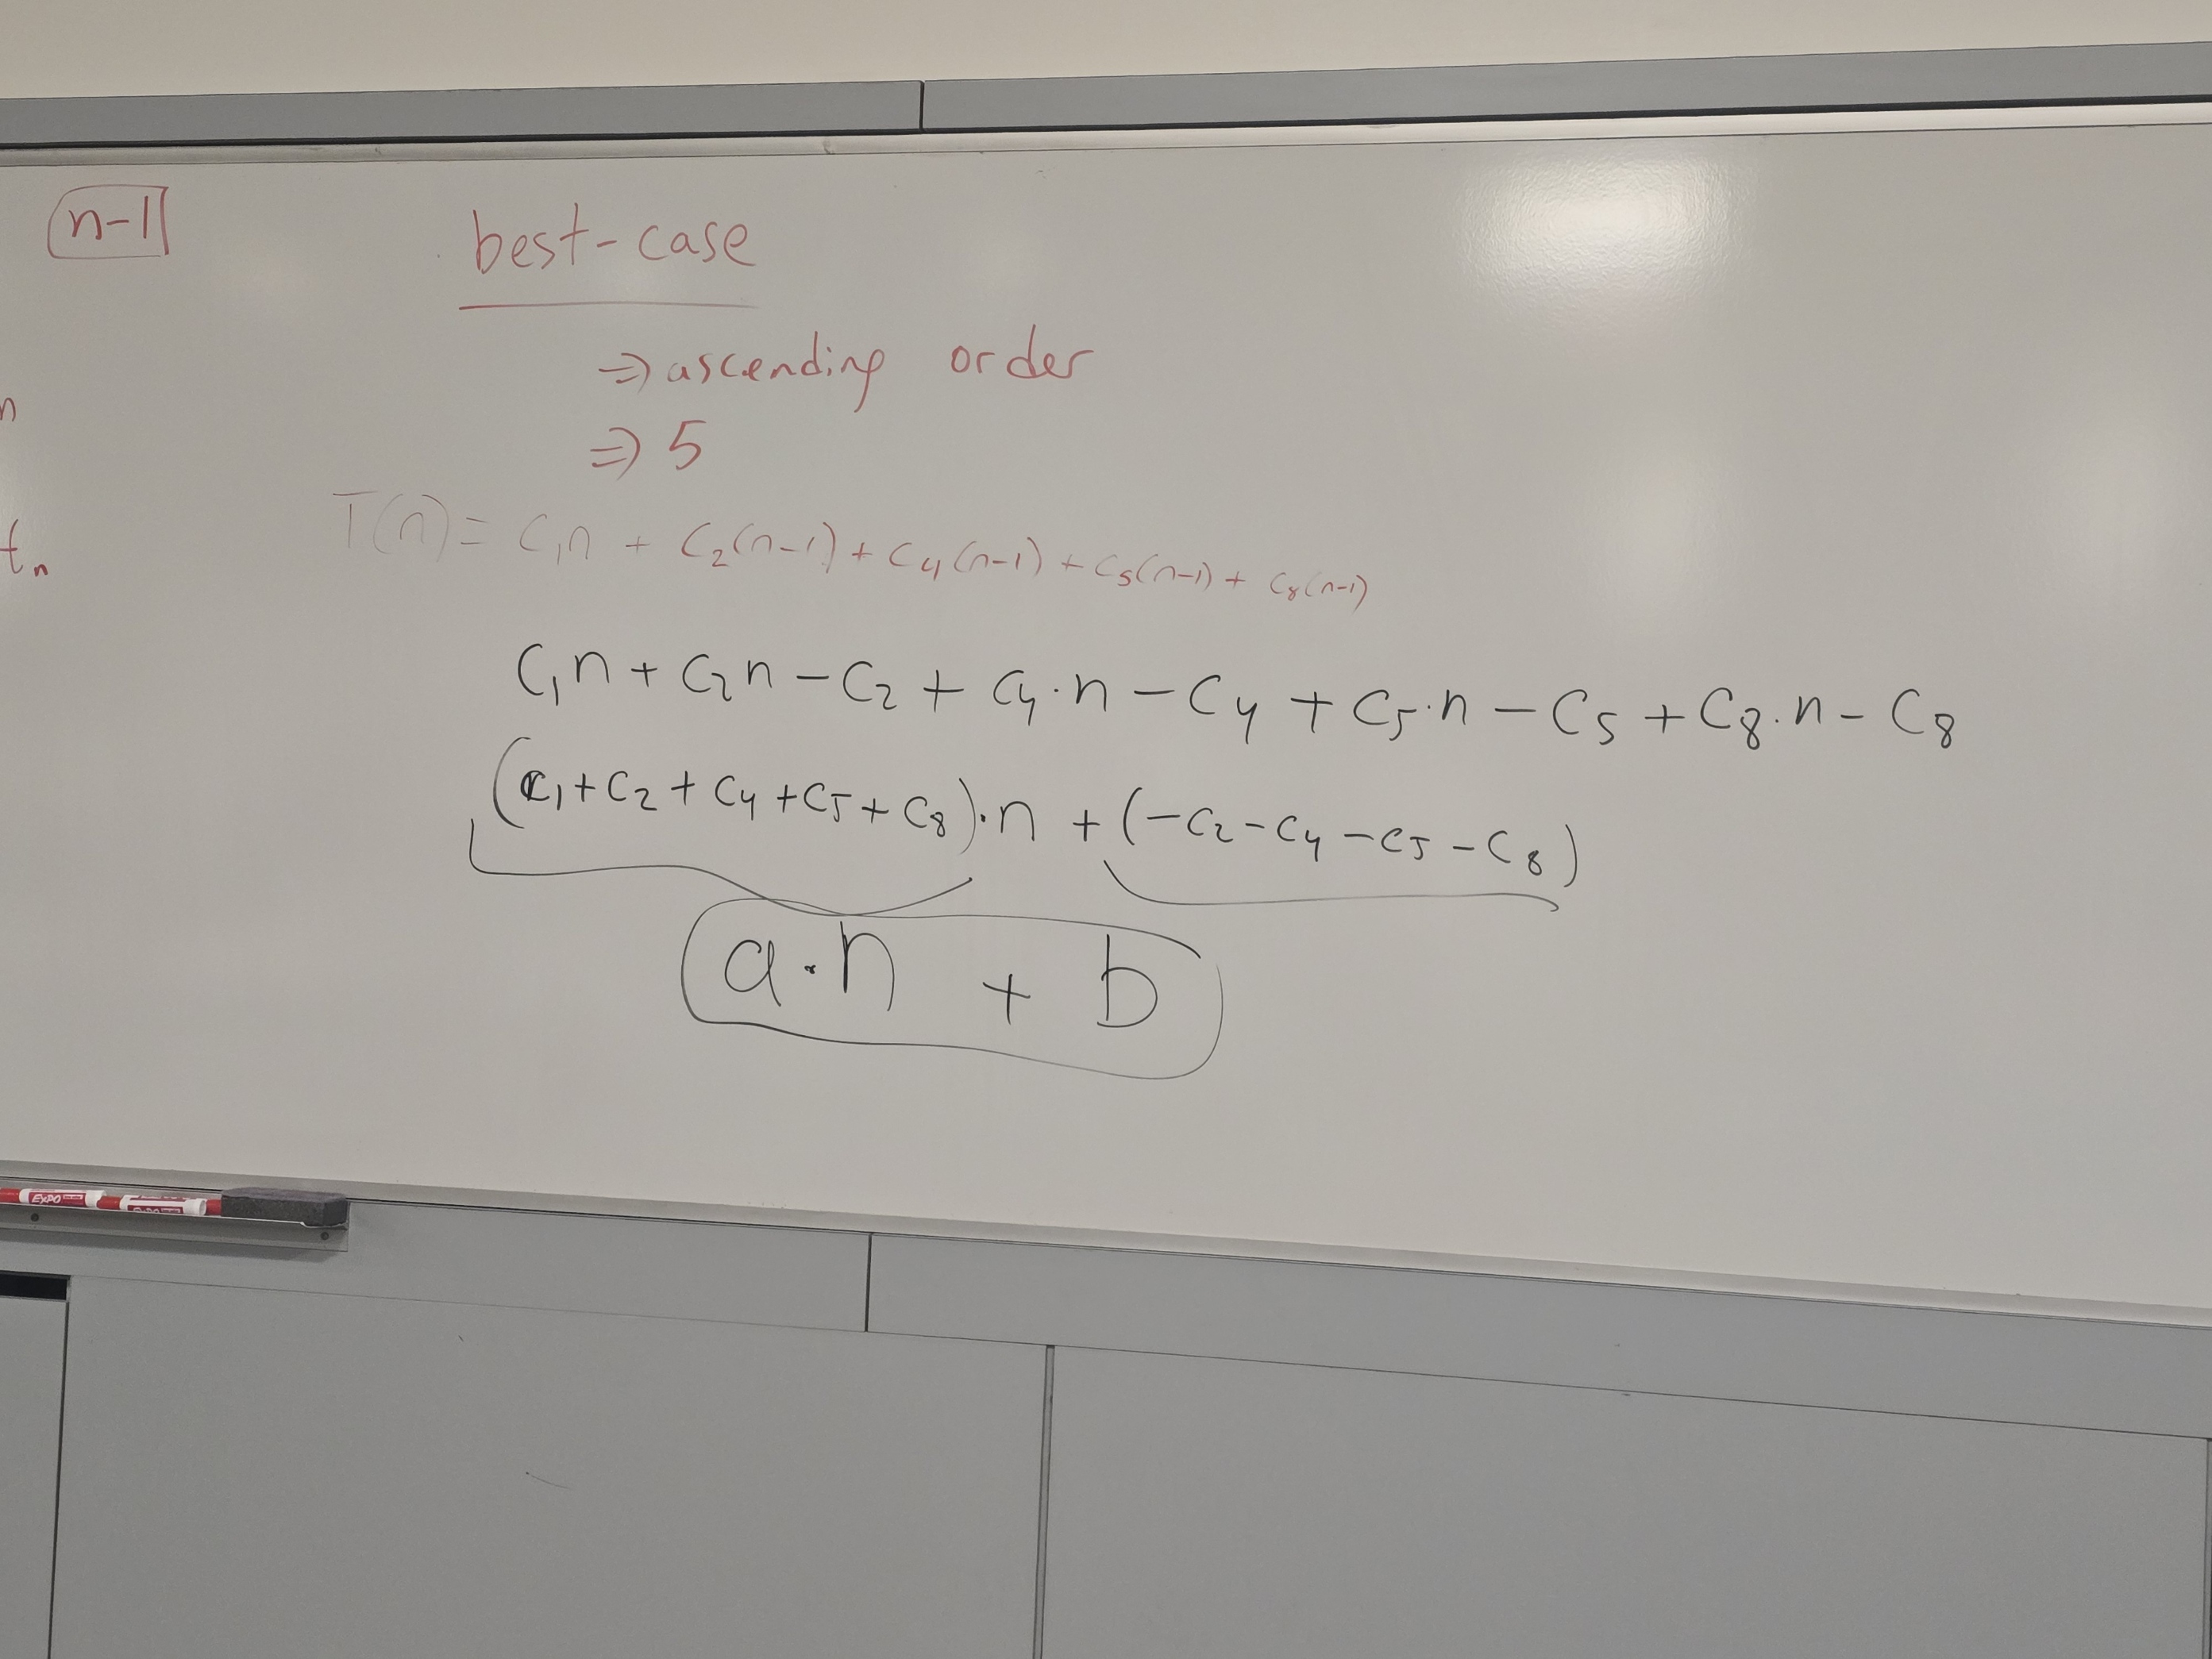 n-1
best-case
⇒ ascending order
⇒ 5
n
T(n) = C₁n + C₂(n-1) + C₄(n-1) + C₅(n-1) + C₈(n-1)
tₙ
C₁n + C₂n - C₂ + C₄·n - C₄ + C₅·n - C₅ + C₈·n - C₈
(C₁ + C₂ + C₄ + C₅ + C₈)·n + (-C₂ - C₄ - C₅ - C₈)
a·n + b
EXPO